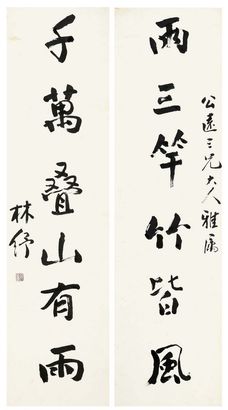 公遠三兄大人雅屬
兩三竿竹皆風
千萬叠山有雨
林紓